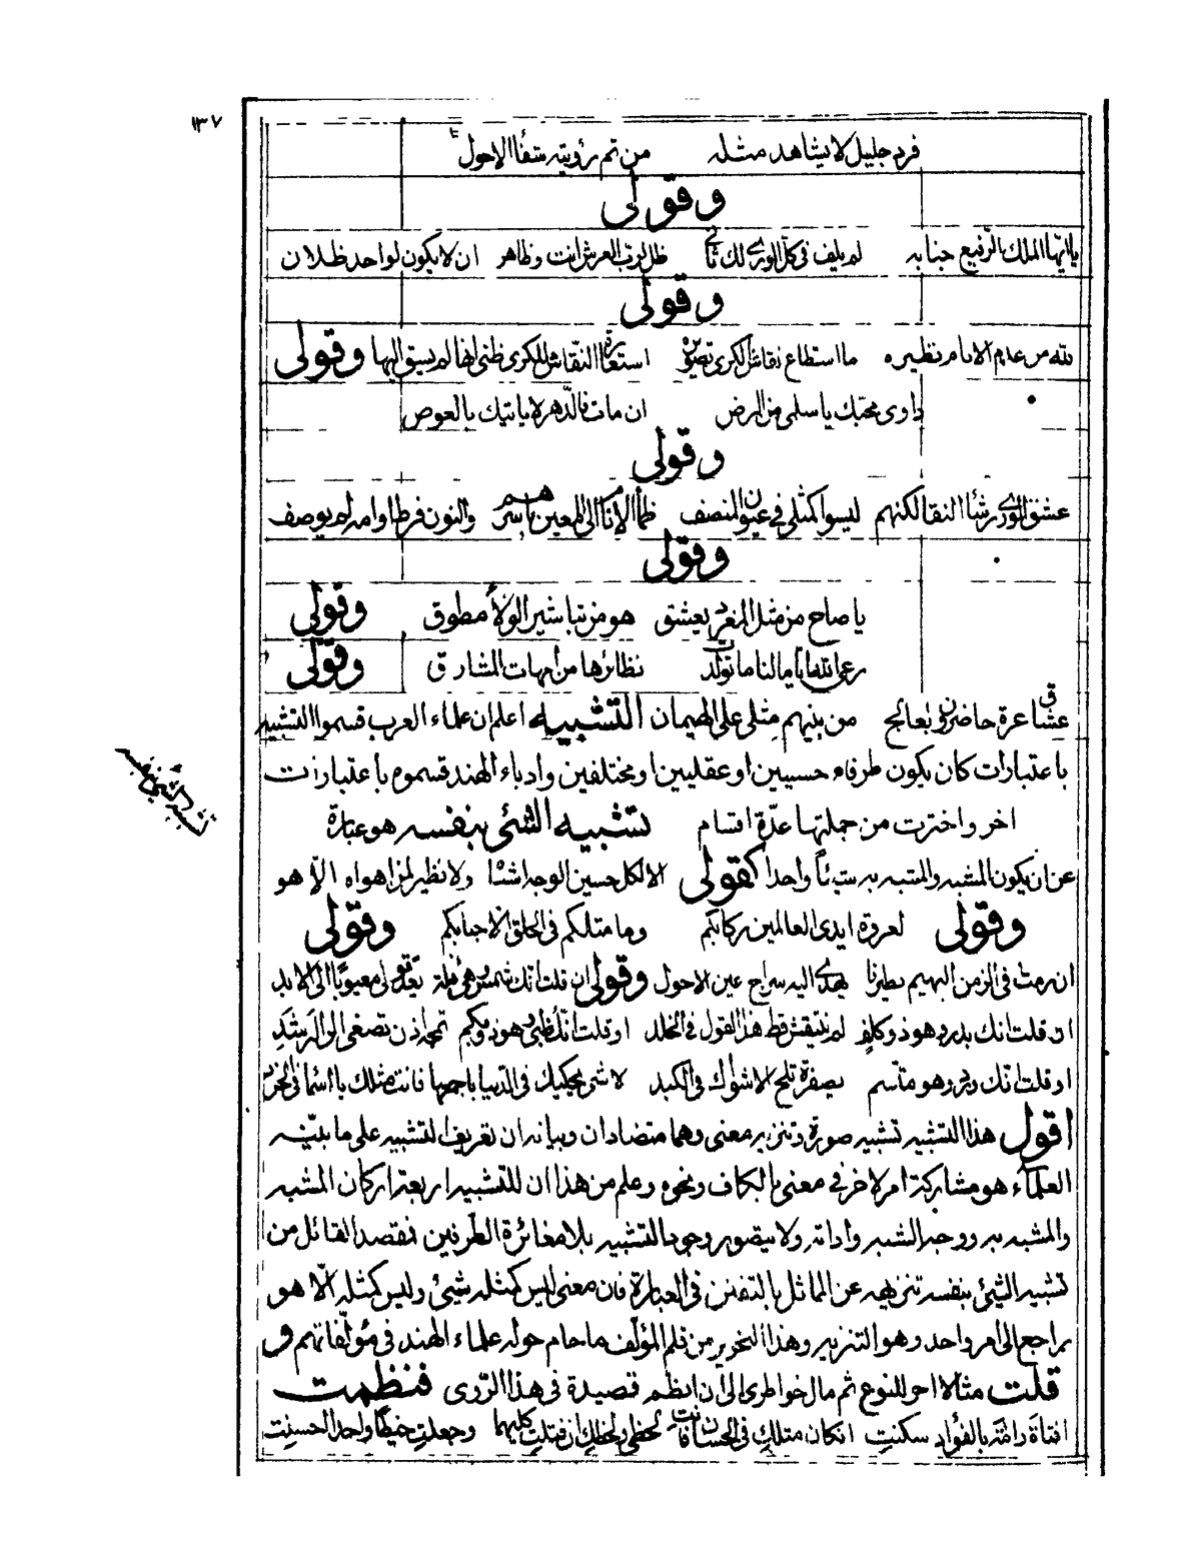 ١٣٧
فرد جليل لا يشاهد مثله من تم رؤيته شفا الاحول
وقولى
يا ايها الملك الرفيع جنابه لم يلف فى كل الورى لك ثانى ظل لرب العرش انت وظاهر ان لا يكون لواحد ظلان
وقولى
لله من عدم الانام نظيره ما استطاع نقاش الكرى تصويره استعارة النقاش للكرى ظنى انها لم يسبق اليها وقولى
داوى محبك يا سلمى من المرض ان مات فالدهر لا ياتيك بالعوض
وقولى
عشق الورى رشأ النقا لكنهم ليسوا كمثلى فى عيون المنصف ظمأ الانام الى المعين باسرهم والنون فرطا وامر لم يوصف
وقولى
يا صاح من مثل المغرد يعشق هو من تباشير الولا مطوق وقولى
رعى الله اياما لنا ما تولدت نظائرها من امهات المشارق وقولى
عشاق عزة حاضرون بعالج من بينهم مثلى على الهيمان التشبيه اعلم ان علماء العرب قسموا التشبيه
باعتبارات كان يكون طرفاه حسيين او عقليين او مختلفين وادباء الهند قسموه باعتبارات
تشبيه الشئ بنفسه
اخر واخترت من جملتها عدة اقسام تشبيه الشئ بنفسه هو عبارة
عن ان يكون المشبه والمشبه به شيئا واحدا كقولى الا لكل حسين الوجه اشباه ولا نظير لمن اهواه الا هو
وقولى لعروة ايدى العالمين ركابكم وما مثلكم فى الخلق الا جنابكم وقولى
ان رمت فى الزمن البهيم نظيرنا يهدى اليه سراج عين الاحول وقولى ان قلت انك شمس وهى آفلة تعد قولى معيوبا الى الابد
او قلت انك بدر وهو ذو كلف لم ينتقش قط هذا القول فى الخلد او قلت انك ظبى وهو ذو بكم تمجه اذن تصغى الى الرشد
او قلت انك ورد وهو متسم بصفرة تلج الاشواك فى الكبد لا شئ يحكيك فى الدنيا باجمعها فانت مثلك يا اسماء فى الخرد
اقول هذا التشبيه تشبيه صورة وتنزيه معنى وهما متضادان وبيانه ان تعريف التشبيه على ما بينه
العلماء هو مشاركة امر لاخر فى معنى بالكاف ونحوه وعلم من هذا ان للتشبيه اربعة اركان المشبه
والمشبه به ووجه الشبه واداته ولا يتصور وجود التشبيه بلا مغائرة الطرفين فقصد القائل من
تشبيه الشيئ بنفسه تنزيهه عن المماثل بالتفنن فى العبارة فان معنى ليس كمثله شيئ وليس كمثله الا هو
راجع الى امر واحد وهو التنزيه وهذا التحرير من قلم المؤلف ما حام حوله علماء الهند فى مؤلفاتهم و
قلت مثالا اخر للنوع ثم مال خواطرى الى ان انظم قصيدة فى هذا الروى فنظمت
افتاة رامة بالفؤاد سكنت ان كان مثلك فى الحسان فانت لحظى ولحظك ان فتلت كليهما وجعلت خيطا واحدا لحسنت